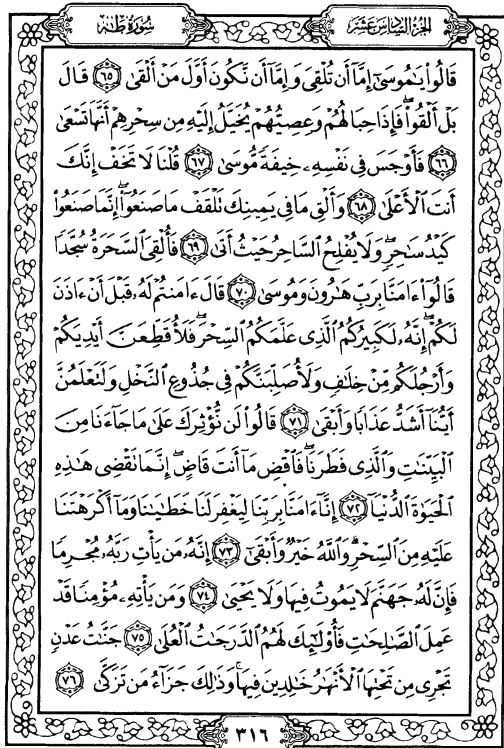 سُورَةُ طٰهٰ
الجُزْءُ السَّادِسَ عَشَرَ
قَالُوا۟ يَـٰمُوسَىٰٓ إِمَّآ أَن تُلْقِىَ وَإِمَّآ أَن نَّكُونَ أَوَّلَ مَنْ أَلْقَىٰ ٦٥ قَالَ
بَلْ أَلْقُوا۟ ۖ فَإِذَا حِبَالُهُمْ وَعِصِيُّهُمْ يُخَيَّلُ إِلَيْهِ مِن سِحْرِهِمْ أَنَّهَا تَسْعَىٰ
٦٦ فَأَوْجَسَ فِى نَفْسِهِۦ خِيفَةً مُّوسَىٰ ٦٧ قُلْنَا لَا تَخَفْ إِنَّكَ
أَنتَ ٱلْأَعْلَىٰ ٦٨ وَأَلْقِ مَا فِى يَمِينِكَ تَلْقَفْ مَا صَنَعُوٓا۟ ۖ إِنَّمَا صَنَعُوا۟
كَيْدُ سَـٰحِرٍ ۖ وَلَا يُفْلِحُ ٱلسَّاحِرُ حَيْثُ أَتَىٰ ٦٩ فَأُلْقِىَ ٱلسَّحَرَةُ سُجَّدًا
قَالُوٓا۟ ءَامَنَّا بِرَبِّ هَـٰرُونَ وَمُوسَىٰ ٧٠ قَالَ ءَامَنتُمْ لَهُۥ قَبْلَ أَنْ ءَاذَنَ
لَكُمْ ۖ إِنَّهُۥ لَكَبِيرُكُمُ ٱلَّذِى عَلَّمَكُمُ ٱلسِّحْرَ ۖ فَلَأُقَطِّعَنَّ أَيْدِيَكُمْ
وَأَرْجُلَكُم مِّنْ خِلَـٰفٍ وَلَأُصَلِّبَنَّكُمْ فِى جُذُوعِ ٱلنَّخْلِ وَلَتَعْلَمُنَّ
أَيُّنَآ أَشَدُّ عَذَابًا وَأَبْقَىٰ ٧١ قَالُوا۟ لَن نُّؤْثِرَكَ عَلَىٰ مَا جَآءَنَا مِنَ
ٱلْبَيِّنَـٰتِ وَٱلَّذِى فَطَرَنَا ۖ فَٱقْضِ مَآ أَنتَ قَاضٍ ۖ إِنَّمَا تَقْضِى هَـٰذِهِ
ٱلْحَيَوٰةَ ٱلدُّنْيَآ ٧٢ إِنَّآ ءَامَنَّا بِرَبِّنَا لِيَغْفِرَ لَنَا خَطَـٰيَـٰنَا وَمَآ أَكْرَهْتَنَا
عَلَيْهِ مِنَ ٱلسِّحْرِ ۗ وَٱللَّهُ خَيْرٌ وَأَبْقَىٰٓ ٧٣ إِنَّهُۥ مَن يَأْتِ رَبَّهُۥ مُجْرِمًا
فَإِنَّ لَهُۥ جَهَنَّمَ لَا يَمُوتُ فِيهَا وَلَا يَحْيَىٰ ٧٤ وَمَن يَأْتِهِۦ مُؤْمِنًا قَدْ
عَمِلَ ٱلصَّـٰلِحَـٰتِ فَأُو۟لَـٰٓئِكَ لَهُمُ ٱلدَّرَجَـٰتُ ٱلْعُلَىٰ ٧٥ جَنَّـٰتُ عَدْنٍ
تَجْرِى مِن تَحْتِهَا ٱلْأَنْهَـٰرُ خَـٰلِدِينَ فِيهَا ۚ وَذَٰلِكَ جَزَآءُ مَن تَزَكَّىٰ ٧٦
٣١٦